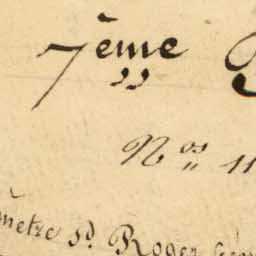 7ème
Nos 11
mètre Sd. Roger